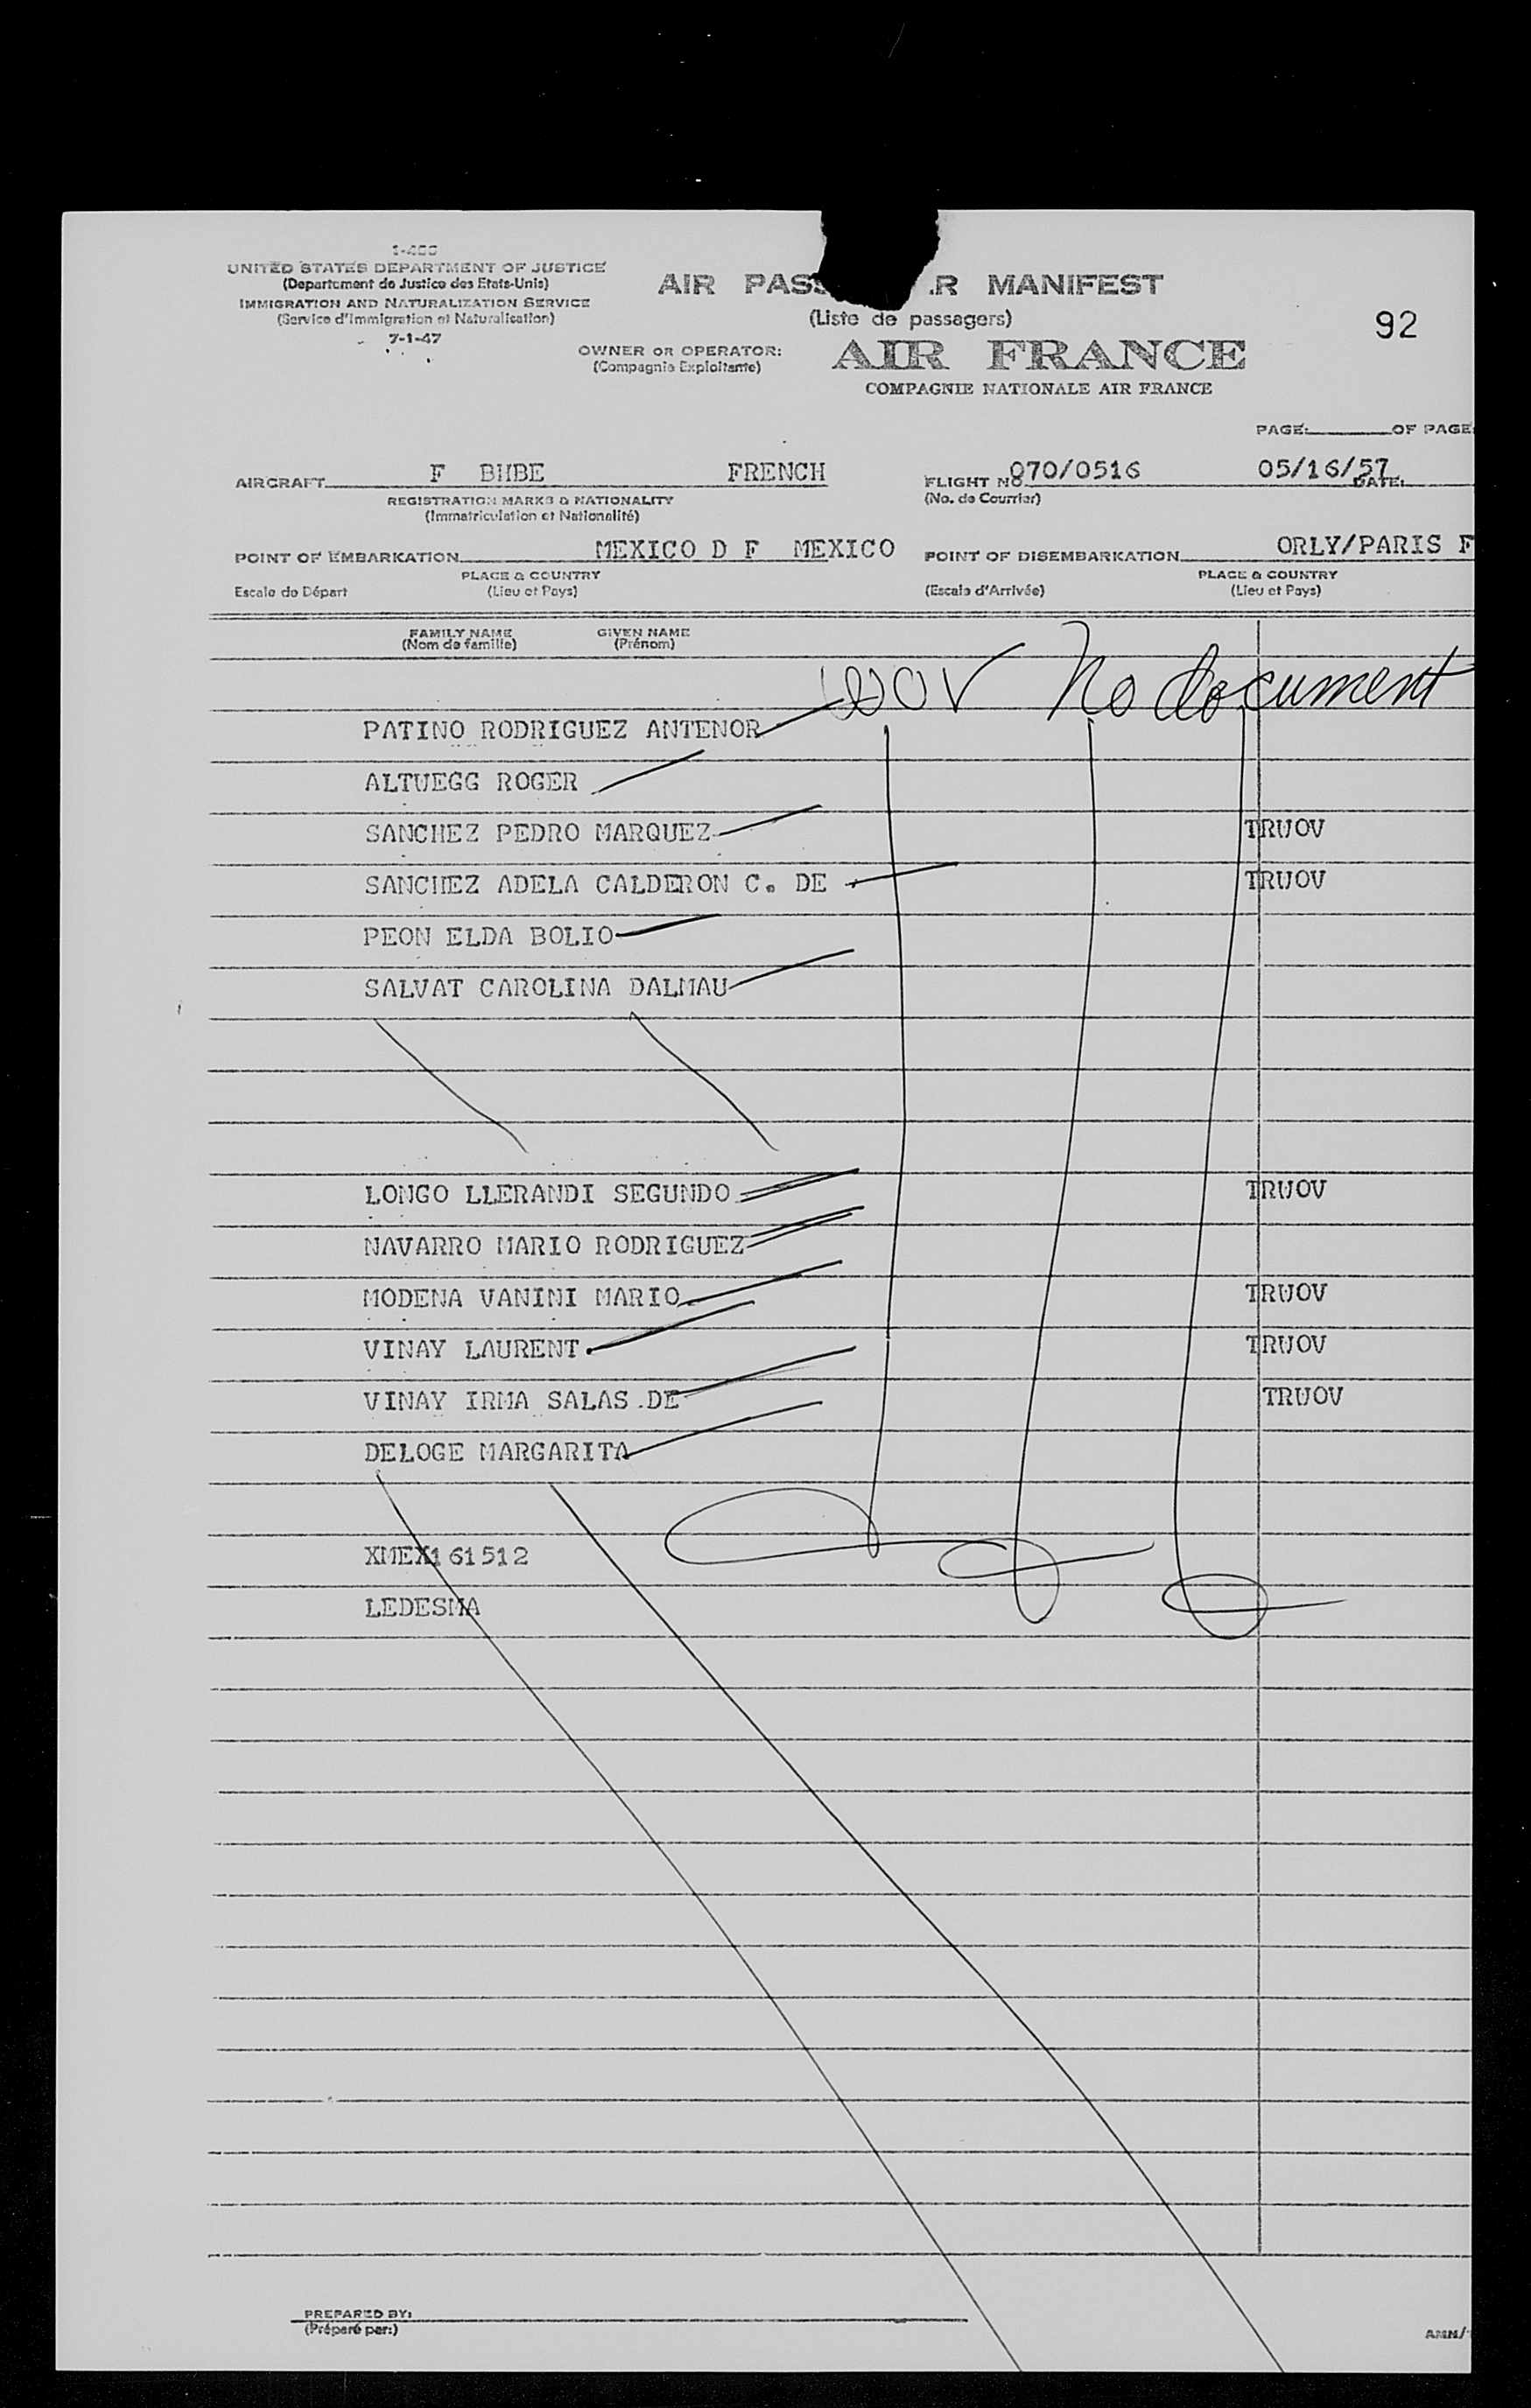 I-466
UNITED STATES DEPARTMENT OF JUSTICE
(Departement de Justice des Etats-Unis)
IMMIGRATION AND NATURALIZATION SERVICE
(Service d'Immigration et Naturalisation)
7-1-47
AIR PASS R MANIFEST
(Liste de passagers)
92
OWNER OR OPERATOR:
(Compagnie Exploitante)
AIR FRANCE
COMPAGNIE NATIONALE AIR FRANCE
PAGE: OF PAGE
AIRCRAFT F BHBE FRENCH
REGISTRATION MARKS & NATIONALITY
(Immatriculation et Nationalité)
FLIGHT No 070/0516 05/16/57 DATE:
(No. de Courrier)
POINT OF EMBARKATION MEXICO D F MEXICO
PLACE & COUNTRY
Escale de Départ (Lieu et Pays)
POINT OF DISEMBARKATION ORLY/PARIS F
PLACE & COUNTRY
(Escale d'Arrivée) (Lieu et Pays)
FAMILY NAME GIVEN NAME
(Nom de famille) (Prénom)
WOV No document
PATINO RODRIGUEZ ANTENOR
ALTWEGG ROGER
SANCHEZ PEDRO MARQUEZ TRWOV
SANCHEZ ADELA CALDERON C. DE TRWOV
PEON ELDA BOLIO
SALVAT CAROLINA DALMAU
LONGO LLERANDI SEGUNDO TRWOV
NAVARRO MARIO RODRIGUEZ
MODENA VANINI MARIO TRWOV
VINAY LAURENT TRWOV
VINAY IRMA SALAS DE TRWOV
DELOGE MARGARITA
XMEX161512
LEDESMA
PREPARED BY:
(Préparé par:)